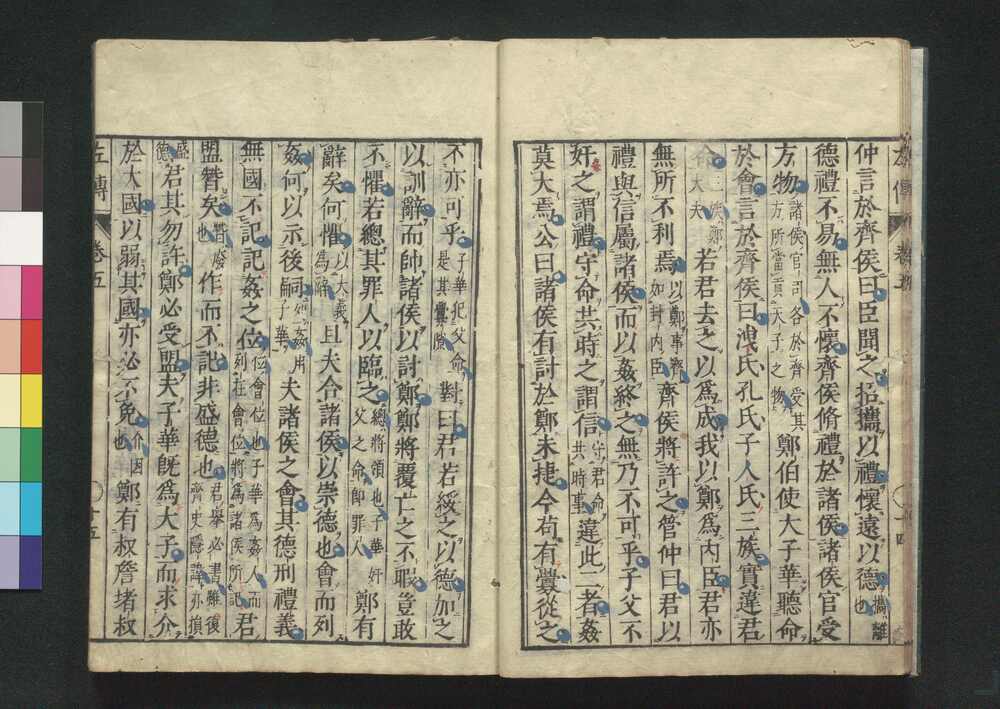 左傳 卷五 十四
仲言於齊侯曰臣聞之招攜以禮懷遠以德攜離也
德禮不易無人不懷齊侯脩禮於諸侯諸侯官受
方物諸侯官司各於齊受其方所當貢天子之物鄭伯使大子華聽命
於會言於齊侯曰洩氏孔氏子人氏三族實違君
命三族鄭大夫若君去之以爲成我以鄭爲內臣君亦
無所不利焉以鄭事齊如封內臣齊侯將許之管仲曰君以
禮與信屬諸侯而以姦終之無乃不可乎子父不
奸之謂禮守命共時之謂信守君命共時事違此二者姦
莫大焉公曰諸侯有討於鄭未捷今苟有釁從之
不亦可乎子華犯父命是其釁隙對曰君若綏之以德加之
以訓辭而帥諸侯以討鄭鄭將覆亡之不暇豈敢
不懼若總其罪人以臨之總將領也子華奸父之命即罪人鄭有
辭矣何懼以大義為辭且夫合諸侯以崇德也會而列
姦何以示後嗣列姦用子華夫諸侯之會其德刑禮義
無國不記記姦之位位會位也子華為姦人而列在會位將為諸侯所記君
盟替矣替廢也作而不記非盛德也君舉必書雖復齊史隱諱亦損
盛德君其勿許鄭必受盟夫子華既爲大子而求介
於大國以弱其國亦必不免介因也鄭有叔詹堵叔
左傳 卷五 十五